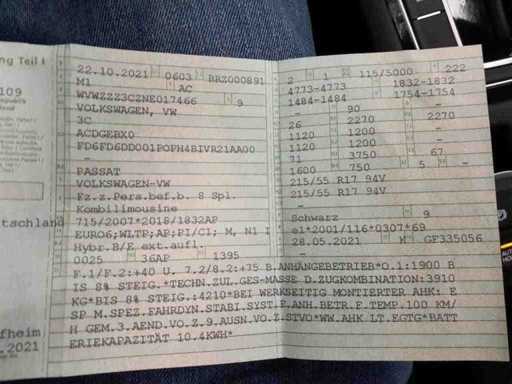 ng Teil I
109
22.10.2021 0603 BRZ000891
M1 AC
WVWZZZ3CZNE017466 9
VOLKSWAGEN, VW
3C
ACDGEBX0
FD6FD6DD001POPH4BIVR21AA00
–
PASSAT
VOLKSWAGEN-VW
Fz.z.Pers.bef.b. 8 Spl.
Kombilimousine
715/2007*2018/1832AP
EURO6;WLTP;AP;PI/CI; M, N1 I
Hybr.B/E ext.aufl.
0025 36AP 1395
2 1 115/5000 222
4773-4773 1832-1832
1484-1484 1754-1754
– 90 –
26 2270 2270
1120 1200 –
1120 1200 –
71 3750 67
1600 750 5 –
215/55 R17 94V
215/55 R17 94V
–
Schwarz 9
e1*2001/116*0307*69
28.05.2021 M GF335056
–
F.1/F.2:+40 U. 7.2/8.2:+75 B.ANHÄNGEBETRIEB*O.1:1900 B
IS 8% STEIG.*TECHN.ZUL.GES-MASSE D.ZUGKOMBINATION:3910
KG*BIS 8% STEIG.:4210*BEI WERKSEITIG MONTIERTER AHK: E
SP M.SPEZ.FAHRDYN.STABI.SYST.F.ANH.BETR.F.TEMP.100 KM/
H GEM.3.AEND.VO.Z.9.AUSN.VO.Z.STVO*WW.AHK LT.EGTG*BATT
ERIEKAPAZITÄT 10.4KWH*
utschland
fheim
.2021